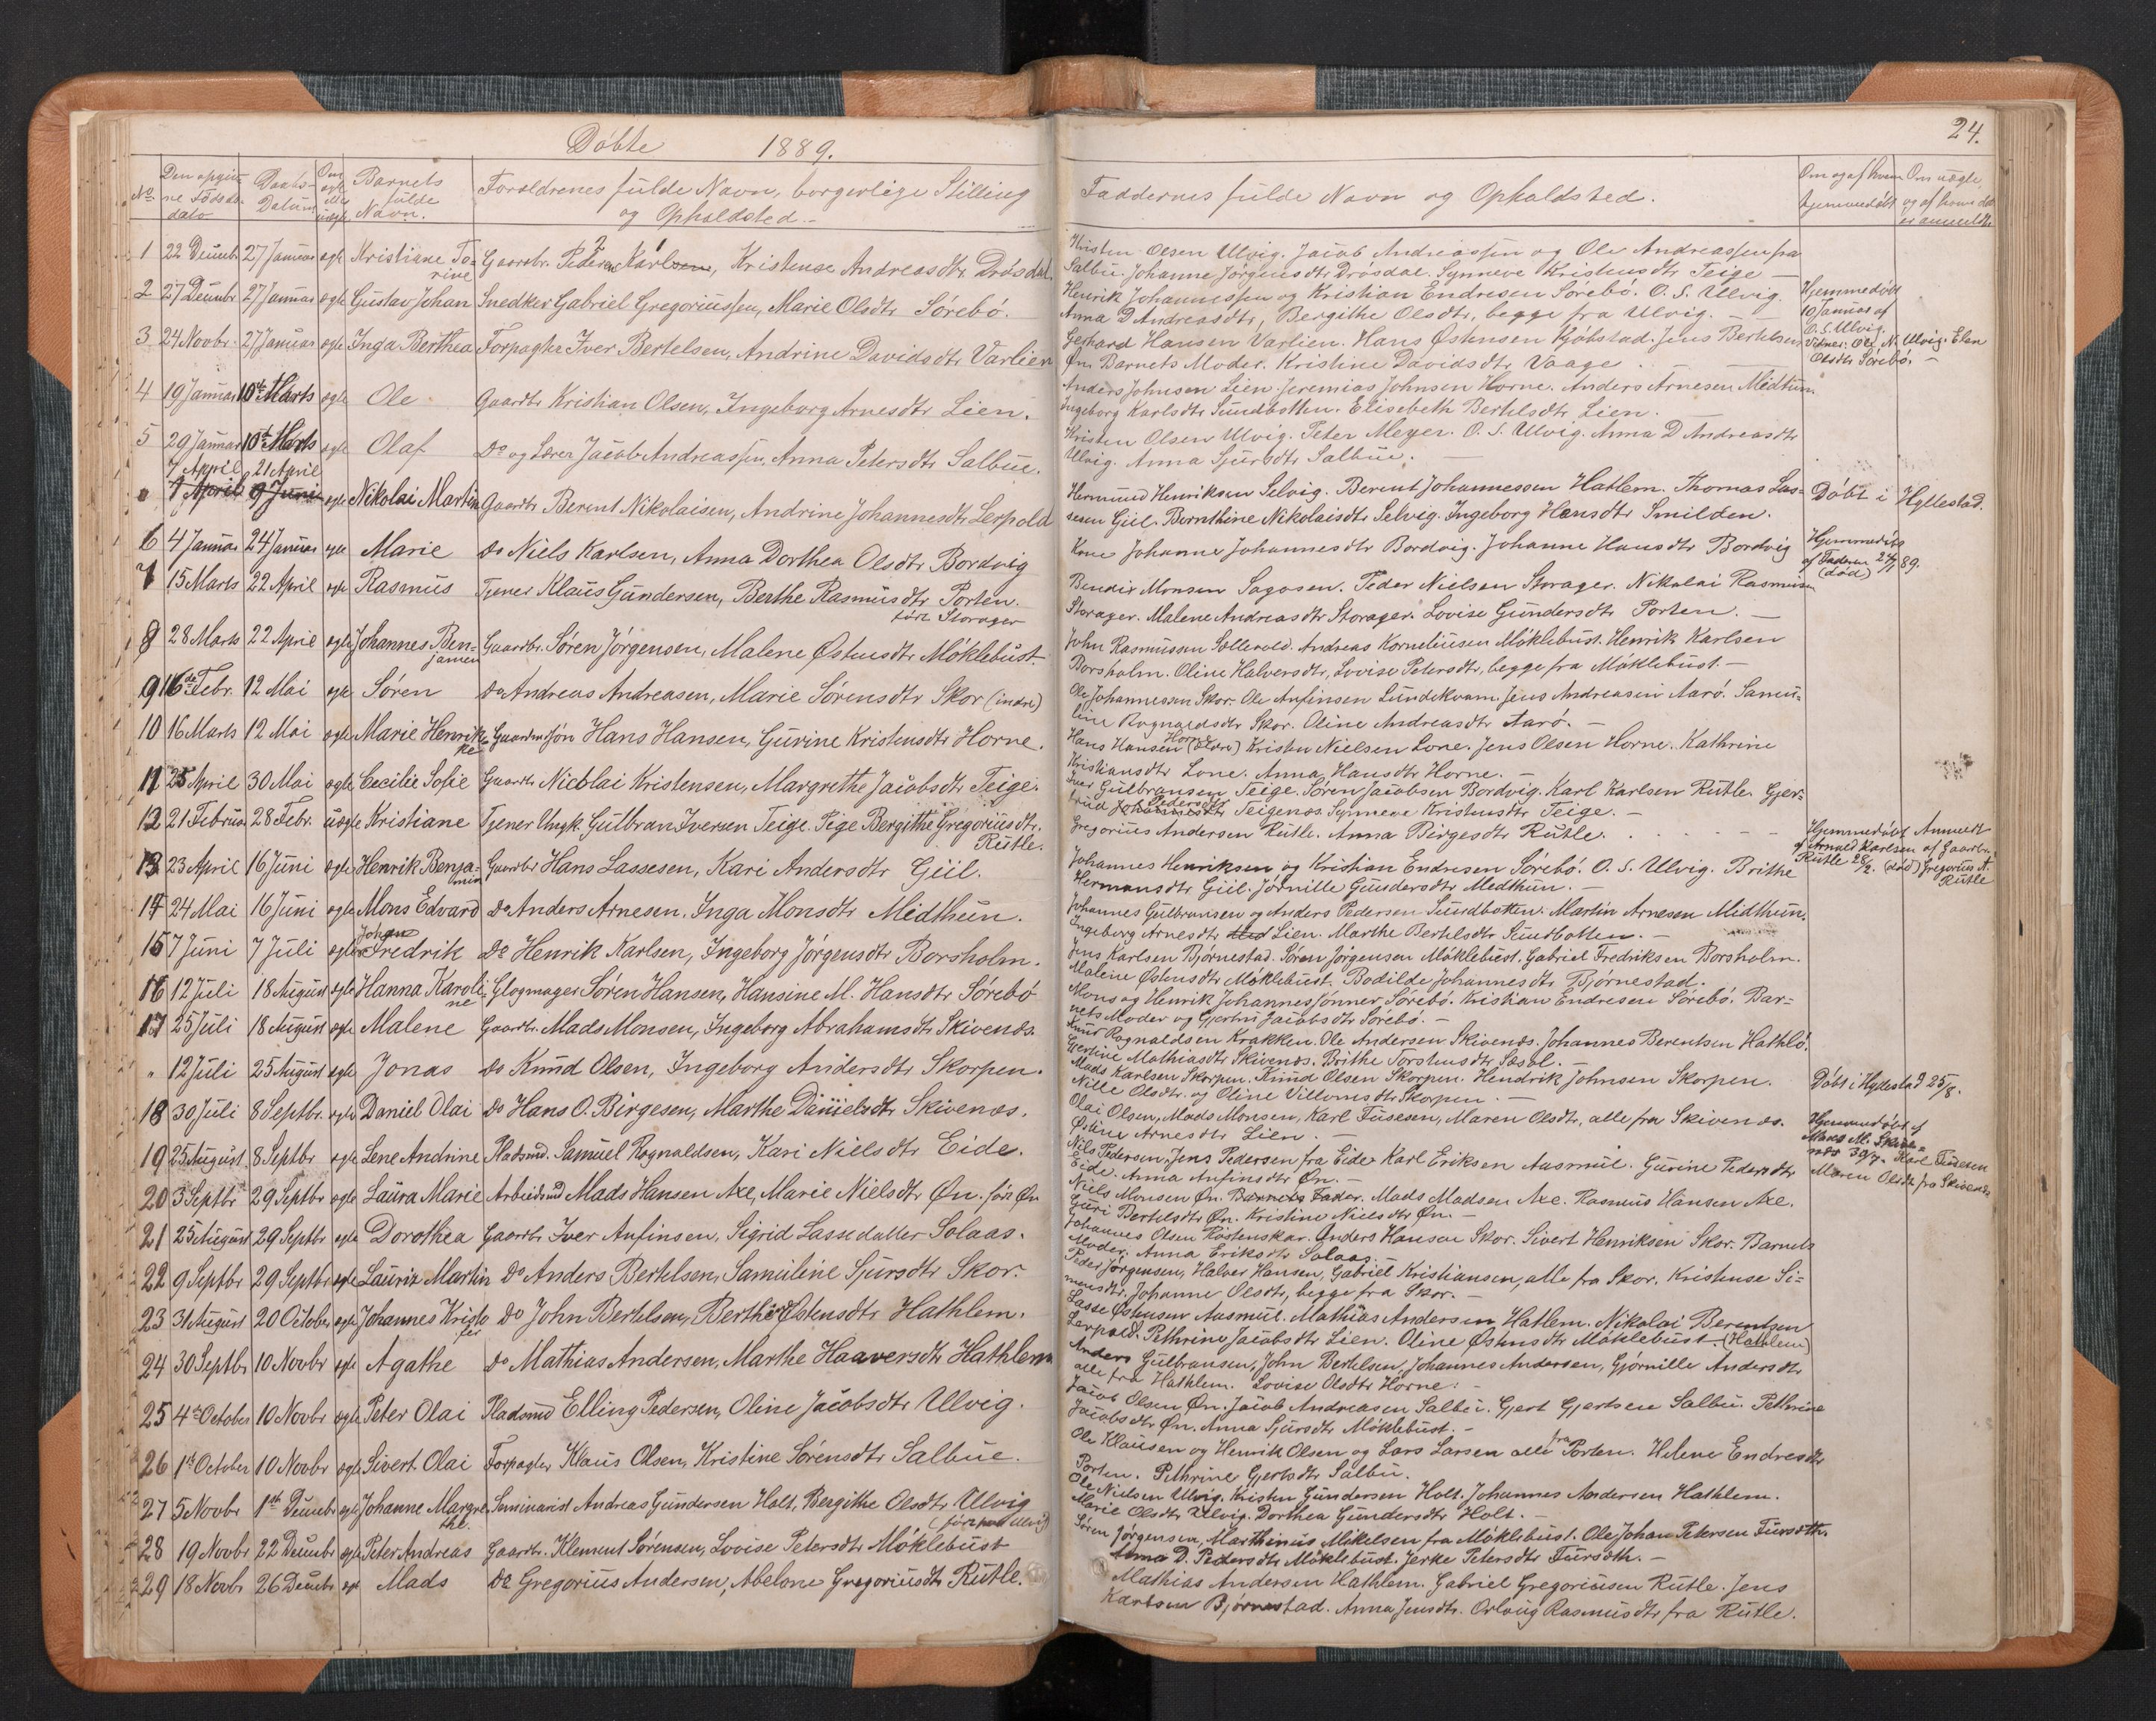 Döbte 1889.
No
Den opgivne Födsdato
Daabs-Datum
Om ægte eller uægte
Barnets fulde Navn.
Forældrenes fulde Navn, borgerlige Stilling
og Opholdsted.
1 22 Decembr 27 Januar ægte Kristiane To=rine Gaardbr. Peder Karlsen, Kristense Andreasdtr Drösdal.
2 27 Decembr 27 Januar ægte Gustav Johan Snedker Gabriel Gregoriussen, Marie Olsdtr Sörebö.
3 24 Novbr. 27 Januar ægte Inga Berthea Forpagter Iver Bertelsen, Andrine Davidsdtr Varlien
4 19 Januar 10de Marts ægte Ole Gaardbr Kristian Olsen, Ingeborg Arnesdtr Lien.
5 29 Januar 10de Marts ægte Olaf Do og Lærer Jacob Andreassen, Anna Petersdtr Salbue.
7 April 21 April
" 7 April 9 Juni ægte Nikolai Martin Gaardbr Berent Nikolaisen, Andrine Johannesdtr Lerpold
6 4 Januar 24 Januar ægte Marie Do Niels Karlsen, Anna Dorthea Olsdtr Bordvig
7 15 Marts 22 April ægte Rasmus Tjener Klaus Gundersen, Berthe Rasmusdtr Porten.
före Storager
8 28 Marts 22 April ægte Johannes Ben=jamen Gaardbr. Sören Jörgensen, Malene Østensdtr Möklebust.
9 16de Febr. 12 Mai ægte Sören Do Andreas Andreasen, Marie Sörensdtr Skor (indre)
10 16 Marts 12 Mai ægte Marie Henrikke Gaardmssön Hans Hansen, Gurine Kristensdtr Horne.
11 25 April 30 Mai ægte Cecilie Sofie Gaardbr Nicolai Kristensen, Margrethe Jacobsdtr Teige.
12 21 Februar 28 Febr. uægte Kristiane Tjener Ungk. Gulbran Iversen Teige. Pige Bergithe Gregoriusdtr.
Rutle.
13 23 April 16 Juni ægte Henrik Benja=min Gaardbr Hans Lassesen, Kari Andersdtr Giil.
14 24 Mai 16 Juni ægte Mons Edvard Do Anders Arnesen. Inga Monsdtr Midthun.
15 7 Juni 7 Juli ægte Johan Fredrik Do Henrik Karlsen, Ingeborg Jörgensdtr Borsholm.
16 12 Juli 18 August ægte Hanna Karoline Glogmager Sören Hansen, Hansine M. Hansdtr Sörebö
17 25 Juli 18 August ægte Malene Gaardbr. Mads Monsen, Ingeborg Abrahamsdtr Skivenæs.
" 12 Juli 25 August ægte Jonas Do Knud Olsen, Ingeborg Andersdtr Skorpen.
18 30 Juli 8 Septbr. ægte Daniel Olai Do Hans O. Birgesen, Marthe Danielsdtr Skivenæs.
19 25 August 8 Septbr ægte Lene Andrine Pladsmd. Samuel Rognaldsen, Kari Nielsdtr Eide.
20 3 Septbr 29 Septbr ægte Laura Marie Arbeidsmd Mads Hansen Axe, Marie Nielsdtr Øn. för Øn
21 25 August 29 Septbr ægte Dorothea Gaardbr Iver Anfinsen, Sigrid Lassedatter Solaas.
22 9 Septbr 29 Septbr ægte Lauriz Martin Do Anders Bertelsen, Samuline Sjursdtr Skor.
23 31 August 20 October ægte Johannes Kristofer Do John Bertelsen, Berthe Østensdtr Hathlem.
24 30 Septbr 10 Novbr ægte Agathe Do Mathias Andersen, Marthe Haaversdtr Hathlem
25 4de October 10 Novbr ægte Peter Olai Pladsmd Elling Pedersen, Oline Jacobsdtr Ulvig.
26 1ste October 10 Novbr ægte Sivert Olai Forpagter Klaus Olsen, Kristine Sörensdtr Salbue.
27 5 Novbr 1ste Decembr ægte Johanne Margrethe. Seminarist Andreas Gundersen Holt, Bergithe Olsdtr Ulvig
28 19 Novbr 22 Decembr ægte Peter Andreas Gaardbr. Klement Sörensen, Lovise Petersdtr Möklebust
29 18 Novbr 26 Decembr ægte Mads Do Gregorius Andersen, Abelone Gregoriusdtr Rutle.
24.
Faddernes fulde Navn og Opholdsted.
Om og af hvem hjemmedöbt
Om uægte, og af hvem det er anmeldt
Kristen Olsen Ulvig. Jacob Andreassen og Ole Andreassen fra
Salbu. Johanne Jörgensdtr Drösdal. Synneve Kristensdtr Teige
Henrik Johannessen og Kristian Endresen Sörebö. O. S. Ulvig.
Anna D Andreasdtr, Bergithe Olsdtr, begge fra Ulvig.
Hjemmedöbt
10 Januar af
O. S. Ulvig.
Vitner: Ole N. Ulvig. Elen
Olsdtr Sörebö.
Gerhard Hansen Varlien. Hans Østensen Kjöbstad. Jens Bertelsen
Øn. Barnets Moder. Kristine Davidsdtr Vaage.
Anders Johnsen Lien. Jeremias Johnsen Horne. Anders Arnesen Midthun.
Ingeborg Karlsdtr Sundbotten. Elisebeth Bertelsdtr Lien.
Kristen Olsen Ulvig. Peter Meyer. O. S. Ulvig. Anna D Andreasdtr
Ulvig. Anna Sjursdtr Salbue.
Hermund Henriksen Selvig. Berent Johannessen Hatlem. Thomas Las=
sesen Giil. Bernthine Nikolaisdtr Selvig. Ingeborg Hansdtr Smilden.
Döbt i Hyllestad.
Kone Johanne Johannesdtr Bordvig. Johanne Hansdtr Bordvig
Hjemmedöbt
af Faderen 24/1 89.
(död)
Bendix Monsen Sagosen. Peder Nielsen Storager. Nikolai Rasmussen
Storager. Malene Andreasdtr Storager. Lovise Gundersdtr Porten.
John Rasmussen Sollevold. Andreas Korneliusen Möklebust. Henrik Karlsen
Borsholm. Oline Halversdtr, Lovise Petersdtr, begge fra Möklebust.
Ole Johannessen Skor. Ole Anfinsen Lundekvam. Jens Andreasen Aarö. Samu=
line Rognaldsdtr Skor. Oline Andreasdtr Aarö.
Hans Hansen Horne (ældre) Kristen Nielsen Lone. Jens Olsen Horne. Kathrine
Kristiansdtr Lone. Anna Hansdtr Horne.
Iver Gulbransen Teige. Sören Jacobsen Bordvig. Karl Karlsen Rutle. Gjer=
trud Johannesdtr Pedersdtr Teigenæs. Synneve Kristensdtr Teige.
Gregorius Andersen Rutle. Anna Birgesdtr Rutle.
Hjemmedöbt
af Arnold Karlsen
Rutle 28/2. (död)
Anmeldt
af Gaardbr.
Gregorius A.
Rutle
Johannes Henriksen og Kristian Endresen Sörebö. O. S. Ulvig. Brithe
Hermansdtr Giil. Jörnille Gundersdtr Medthun.
Johannes Gulbransen og Anders Pedersen Sundbotten. Martin Arnesen Midthun.
Ingeborg Arnesdtr Lien. Marthe Bertelsdtr Sundbotten.
Jens Karlsen Bjørnestad. Sören Jörgensen Möklebust. Gabriel Fredriksen Borsholm.
Malene Østensdtr Möklebust. Bodilde Johannesdtr Bjørnestad.
Mons og Henrik Johannessönner Sörebö. Kristian Endresen Sörebö. Bar=
nets Moder og Gjertrud Jacobsdtr Sörebö.
Knud Rognaldsen Krakken. Ole Andersen Skivenæs. Johannes Berentsen Hathlö.
Gjertine Mathiasdtr Skivenæs. Brithe Torstensdtr Sæsol.
Mads Karlsen Skorpen. Knud Olsen Skorpen. Hendrik Johnsen Skorpen.
Nille Olsdtr. og Oline Villomsdtr Skorpen.
Döbt i Hyllestad 25/8.
Olai Olsen, Mads Monsen, Karl Tuesen, Maren Olsdtr, alle fra Skivenæs.
Østine Arnesdtr Lien.
Hjemmedöbt af
Mads M. Skive=
næs 30/7. Karl Tuesen
Maren Olsdtr fra Skivenæs
Nils Pedersen, Jens Pedersen fra Eide. Karl Eriksen Aasmul. Gurine Pedersdtr
Eide. Anna Anfinsdtr Øn.
Niels Monsen Øn. Barnets Fader. Mads Madsen Axe. Rasmus Hansen Axe.
Guri Bertelsdtr Øn. Kristine Nielsdtr Øn.
Johannes Olsen Röstenskar. Anders Hansen Skor. Sivert Henriksen Skor. Barnets
Moder. Anna Eriksdtr Solaas.
Peder Jörgensen, Halver Hansen, Gabriel Kristiansen, alle fra Skor. Kristense Si=
monsdtr. Johanne Olsdtr, begge fra Skor.
Lasse Østensen Aasmul. Mathias Andersen Hatlem. Nikolai Berentsen
Lerpold. Pethrine Jacobsdtr Lien. Oline Østensdtr Möklebust. (Hathlem)
Anders Gulbransen, John Bertelsen, Johannes Andersen, Gjörnille Andersdtr
alle fra Hathlem. Lovise Olsdtr Horne.
Jacob Olsen Øn. Jacob Andreasen Salbu. Gjert Gjertsen Salbu. Pethrine
Jacobsdtr Øn. Anna Sjursdtr Möklebust.
Ole Klausen og Henrik Olsen og Lars Larsen alle fra Porten. Helene Endresdtr
Porten. Pethrine Gjertsdtr Salbu.
Ole Nielsen Ulvig. Kristen Gundersen Holt. Johannes Andersen Hathlem.
Marie Olsdtr Ulvig. Dorthea Gundersdtr Holt.
Sören Jörgensen, Marthinus Mikelsen fra Möklebust. Ole Johan Petersen Furseth.
Anna D. Pedersdtr Möklebust. Jerke Petersdtr Furseth.
Mathias Andersen Hathlem. Gabriel Gregoriusen Rutle. Jens
Karlsen Bjørnestad. Anna Jensdtr. Orloug Rasmusdtr fra Rutle.